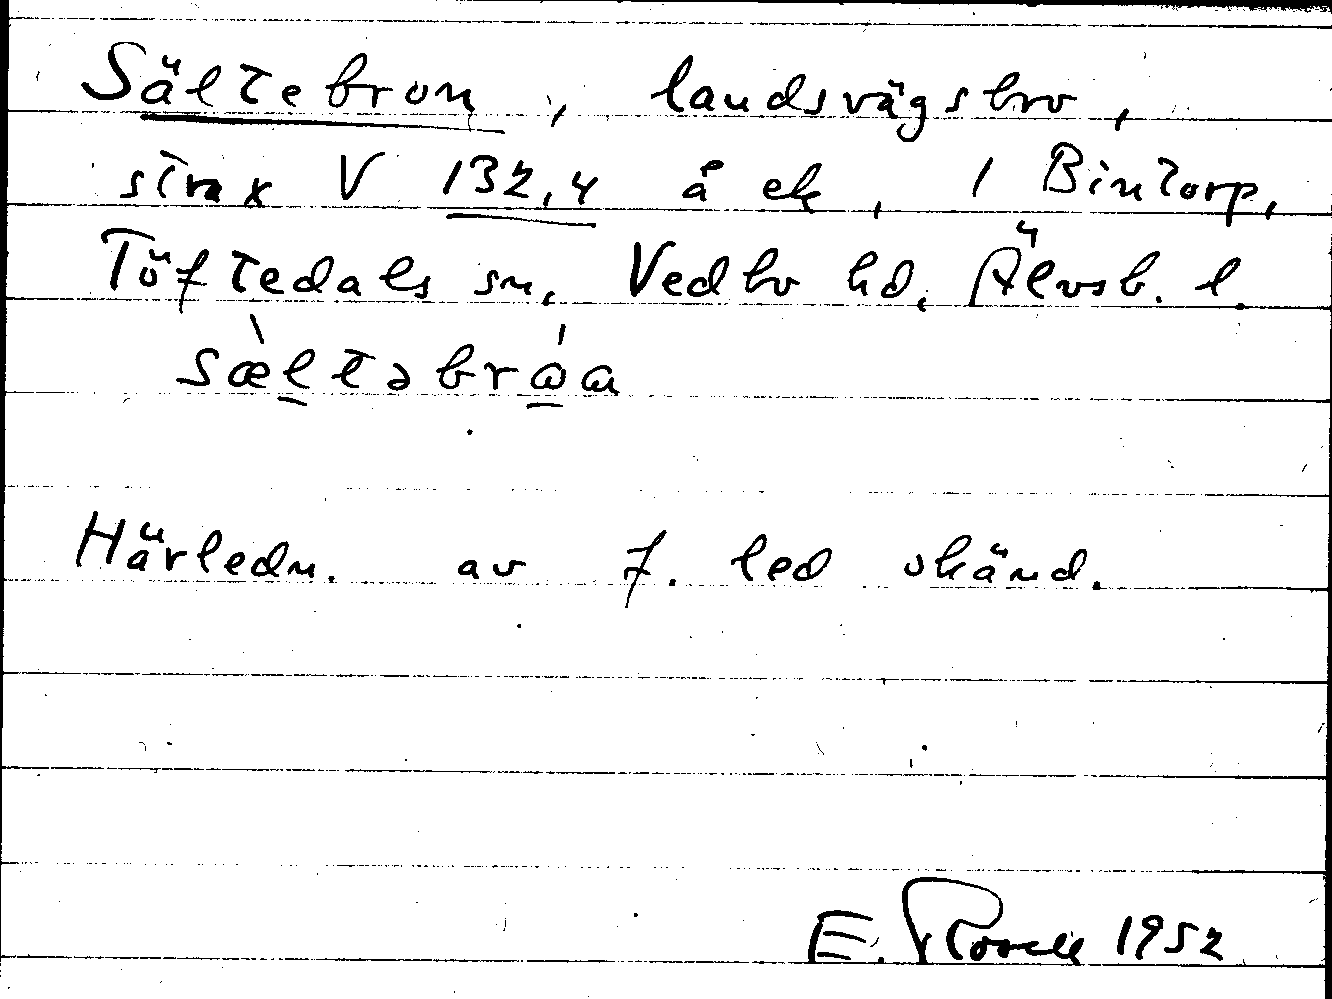 Sältebron, landsvägsbro,
strax V 132,4 å ek, 1 Bintorp,
Töftedals sn, Vedbo hd, Älvsb. l.
sæ̀ltəbrɷ́a
Härledn. av f. led okänd.
E. 1952